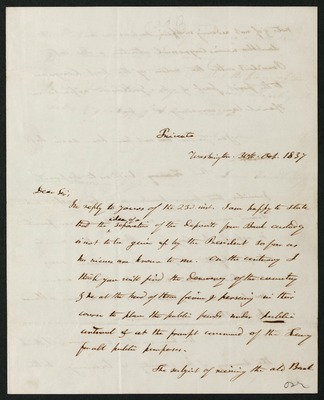 Private
Washington 30th Oct. 1837
Dear Sir,
In reply to yours of the 23d inst. I am happy to state
idea of a
that the separation of the Deposits from Bank custody
is not to be given up by the President so far as
his views are known to me. On the contrary I
think you will find the Democracy of the country
& he at the head of them firm & pressing in their
course to place the public funds under public
control & at the prompt command of the Treasy
for all public purposes.
The subject of reviving the old Bank
over